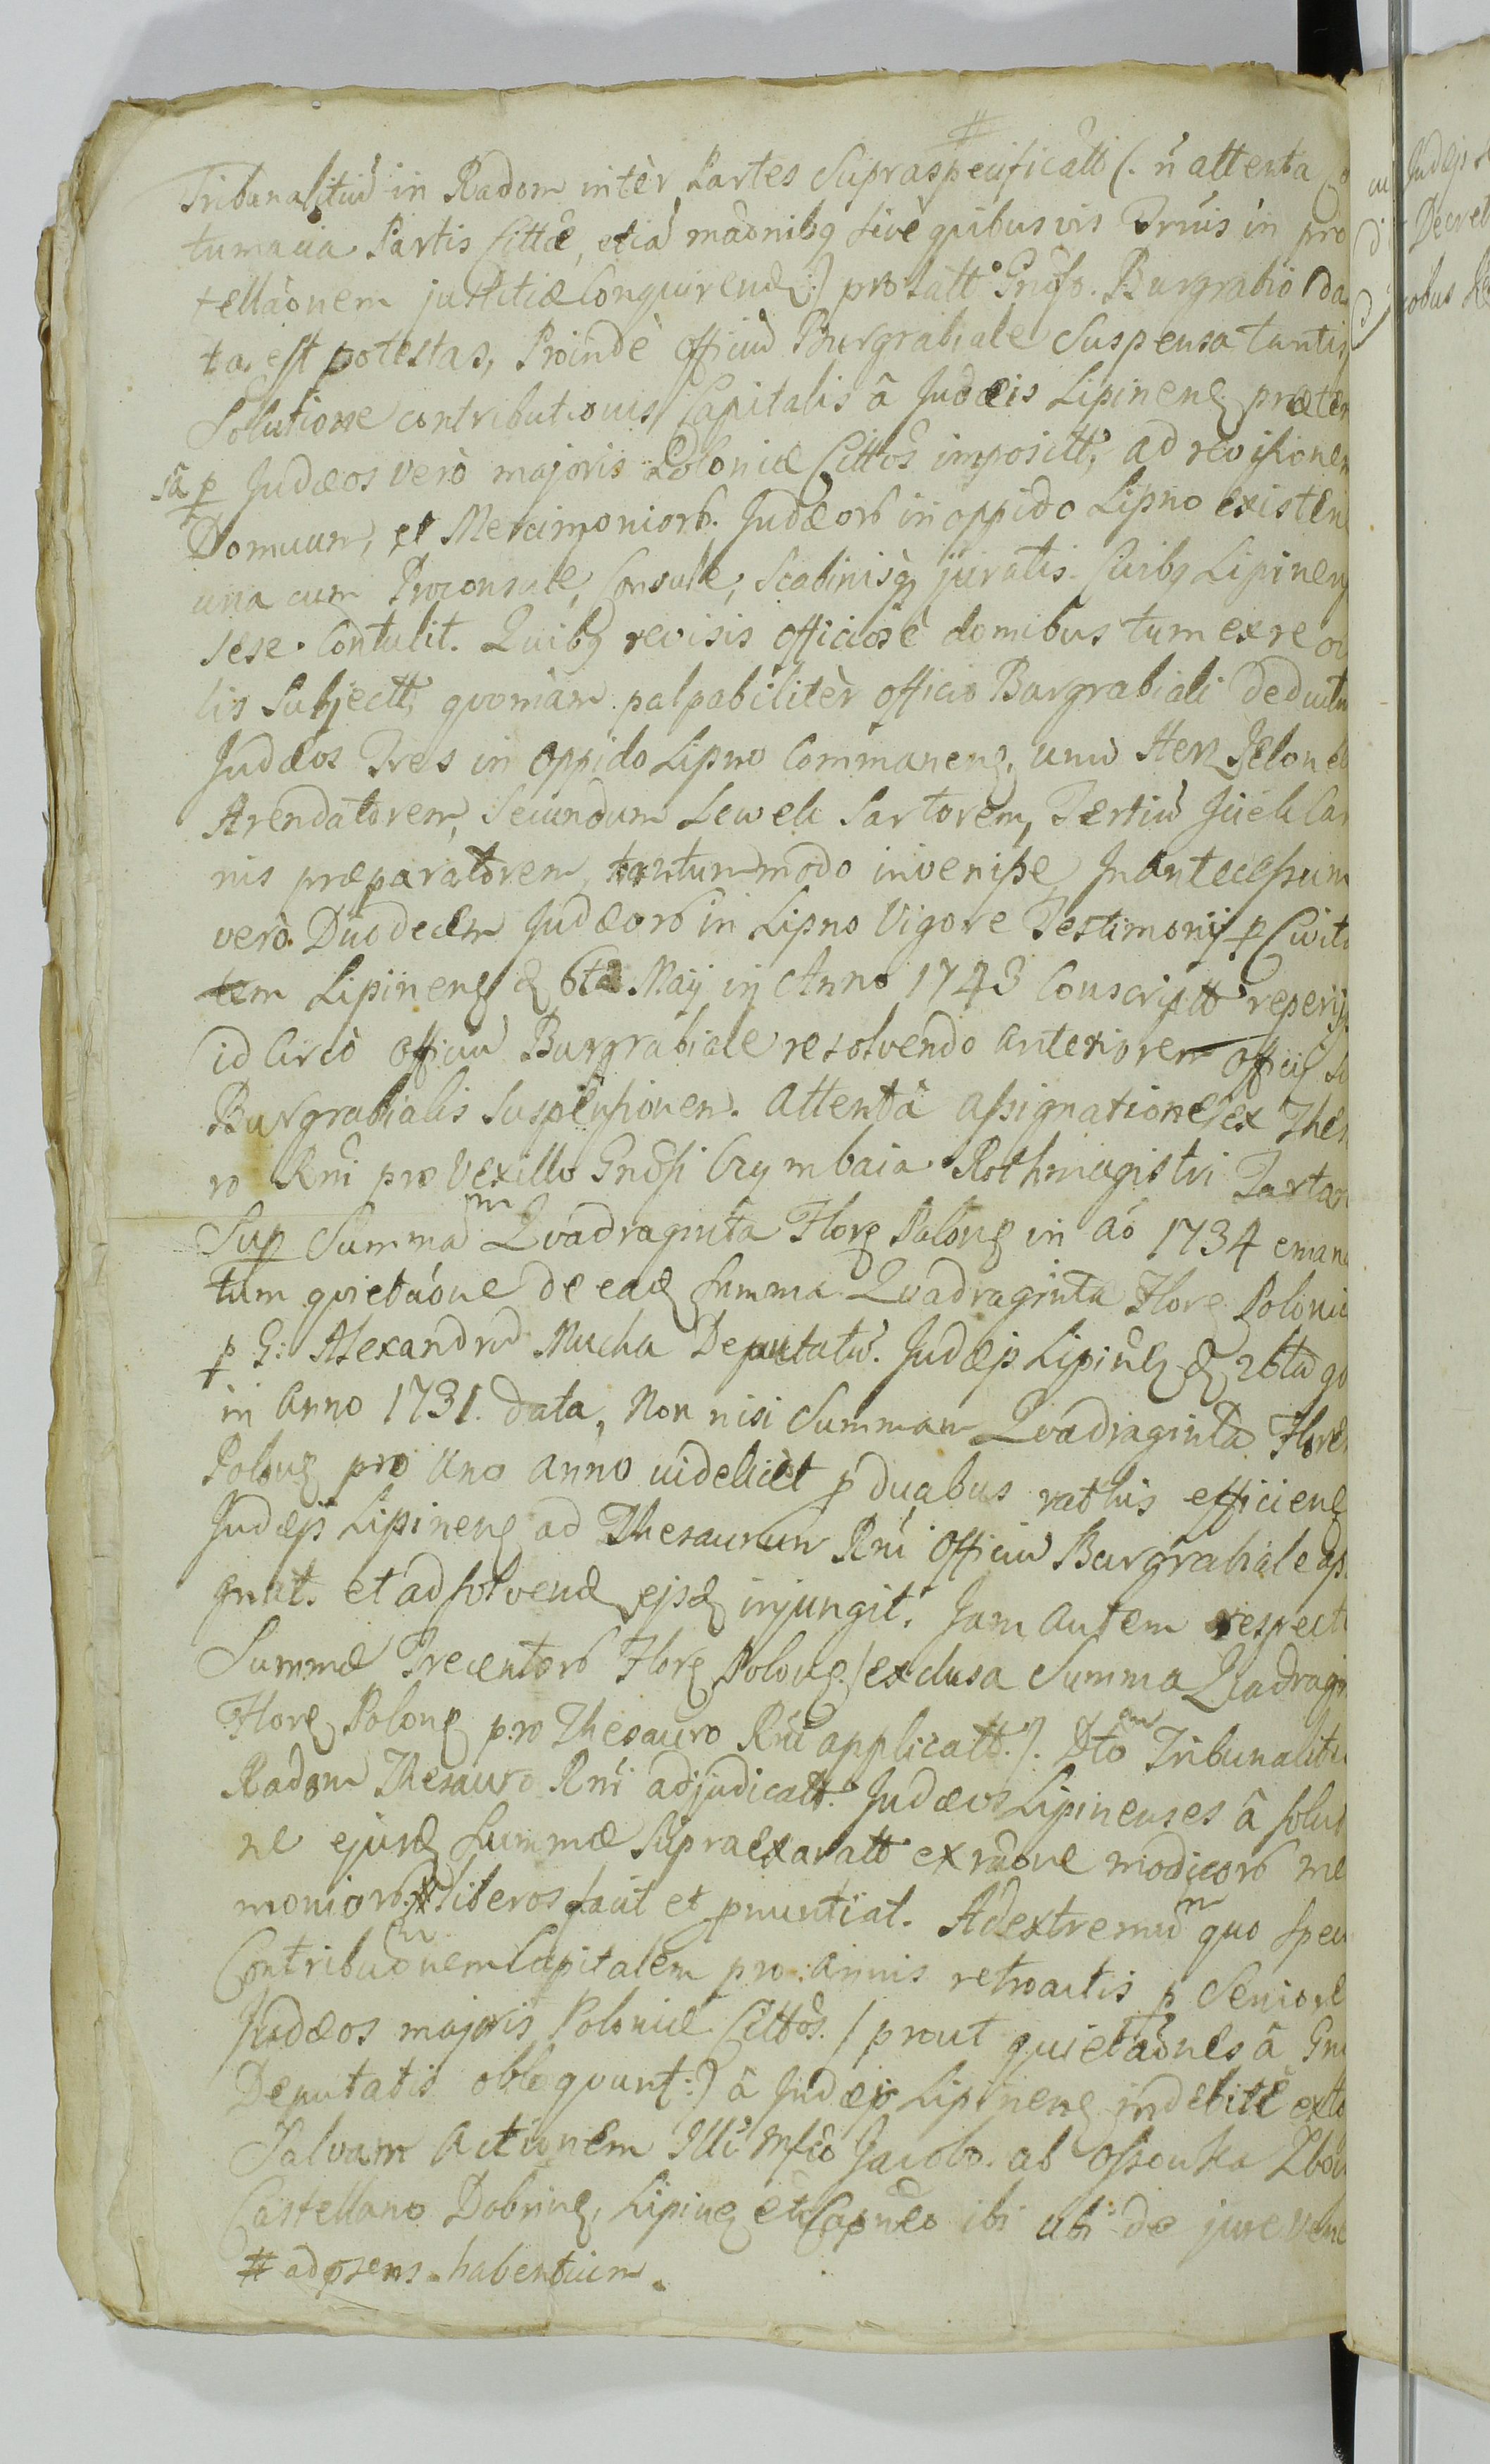 #
Tribunalitiũ in Radom intèr Partes Supraspecificatt (. n̄ attenta Co
tumacia Partis Cittæ, etiã mãõnibq sivè quibusvis Prmis in pro
tellãonem justitiæ Conquirendæ:) prolatt Gnõso. Burgrabio da
ta est potestas, Proindè Officiũ Burgrabiale Suspensa tantis
Solutione contributionis Capitalis â Judæis Lipinenȩ præten
sã p Judæos verò majoris Poloniæ Cittos impositt, ad revisionem
Domuum, et Mercimoniorb. Judæorb in oppido Lipno existen
una cum Proconsule, Consule, Scabinisq juratis. Civibq Lipinen
sese Contulit. Quibq revisis officiosè domibus tum ex re oc
lis Subjectt, quoniam palpabilitèr officio Burgrabiali deductu
Judæos Tres in Oppido Lipno Commanenȩ, unũ Herz
Arendatorem, Secundum Lewek Sartorem, Tertiũ Jcek Car
nis præparatorem, tantummodo invenisse, In Antecessum
verò Duodecem Judæorb in Lipno Vigore Testimonij p Civita
tem Lipinenȩ d 6tã Maij in Anno 1743 Conscriptt reperijs
id Circò Officiũ Burgrabiale resolvendo anteriorem Officij Su
Burgrabialis Suspensionem. Attentâ assignatione ex Thesau
ro Rñi pro Vexillo Gnõsi Krymbaia Rothmagistri Tartaro
Sup Summam Quadraginta Florȩ Polonȩ in aõ 1734 emana
tum quietãone de eadȩ Summa Quadraginta Florȩ Poloni
p G: Alexandrũ Mucha Deputatũ. Judæis Lipinenȩ d 26ta
in Anno 1731. data, Non nisi Summam Quadraginta Floren
Polonȩ pro Uno Anno videlicèt p duabus rathis efficienȩ
Judæis Lipinenȩ ad Thesaurum Rñi Officiũ Burgrabiale assi
gnat. et adsolvendȩ ejsdȩ injungit. Jam autem respectu
Summæ Trecentorb Florȩ Polonȩ / exclusa Summa Quadragin
Florȩ Polonȩ pro Thesauro Rñi applicatt.). Dtõ Tribunalitiũ
Radom Thesauro Rñi adjudicatt. Judæos Lipinenses â solut
ne ejusdȩ Summæ Supraexaratt ex rãone modicorb me
moniorb liberos facit et pnuntiat. Ad extremũ quo spec
Contribuõnem Capitalem pro Annis retroactis p Seniore
Judæos majoris Poloniæ Cittos. / prout quietãones â Gn
Deputatis obloquunt:) â Judæis Lipinenȩ indebite exto
Salvam Actionem Illi Mfico Jacobo. ab Ossowka Zbo
Castellano Dobrinȩ, Lipinȩ et Capneo ibi Ubi de jure vene
# ad psens habentium.